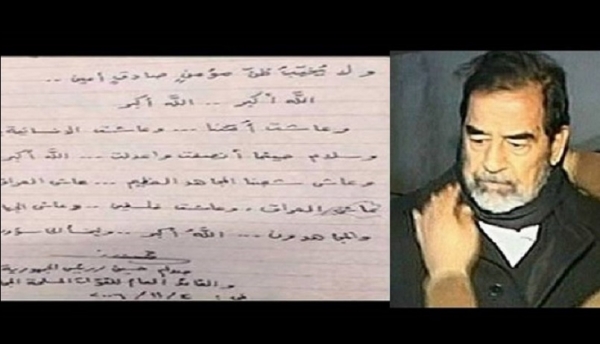 و لا يُخيّبُ ظنّ مؤمنٍ صادقٍ أمين ..
الله أكبر .. الله أكبر
وعاشت أمتنا ... وعاشت الإنسانية
وسلام حيثما أنصفت واعدلت ... الله أكبر
وعاش شعبنا المجاهد العظيم ... عاش العراق
العراق ، وعاشت فلسطين .. وعاش
والمجاهدون ... الله أكبر ..
صدام حسين رئيس الجمهورية
والقائد العام للقوات المسلحة
في : ٢٠٠٦/١١/